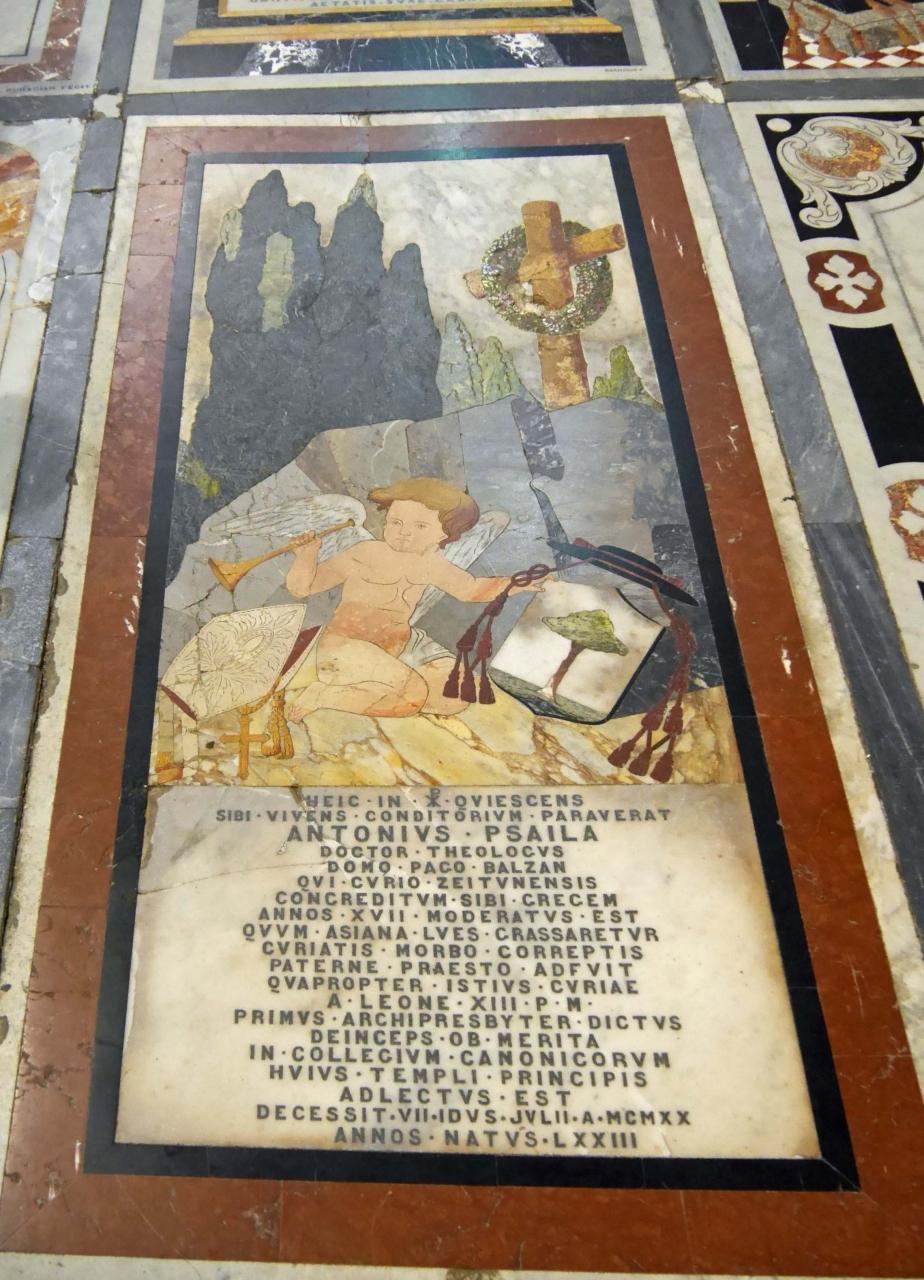 AETATIS·SVAE·
HEIC·IN·☧·QVIESCENS
SIBI·VIVENS·CONDITORIVM·PARAVERAT
ANTONIVS·PSAILA
DOCTOR·THEOLOGVS
DOMO·PAGO·BALZAN
QVI·CVRIO·ZEITVNENSIS
CONCREDITVM·SIBI·GREGEM
ANNOS·XVII·MODERATVS·EST
QVVM·ASIANA·LVES·GRASSARETVR
CVRIATIS·MORBO·CORREPTIS
PATERNE·PRAESTO·ADFVIT
QVAPROPTER·ISTIVS·CVRIAE
A·LEONE·XIII·P·M·
PRIMVS·ARCHIPRESBYTER·DICTVS
DEINCEPS·OB·MERITA
IN·COLLEGIVM·CANONICORVM
HVIVS·TEMPLI·PRINCIPIS
ADLECTVS·EST
DECESSIT·VII·IDVS·JVLII·A·MCMXX
ANNOS·NATVS·LXXIII